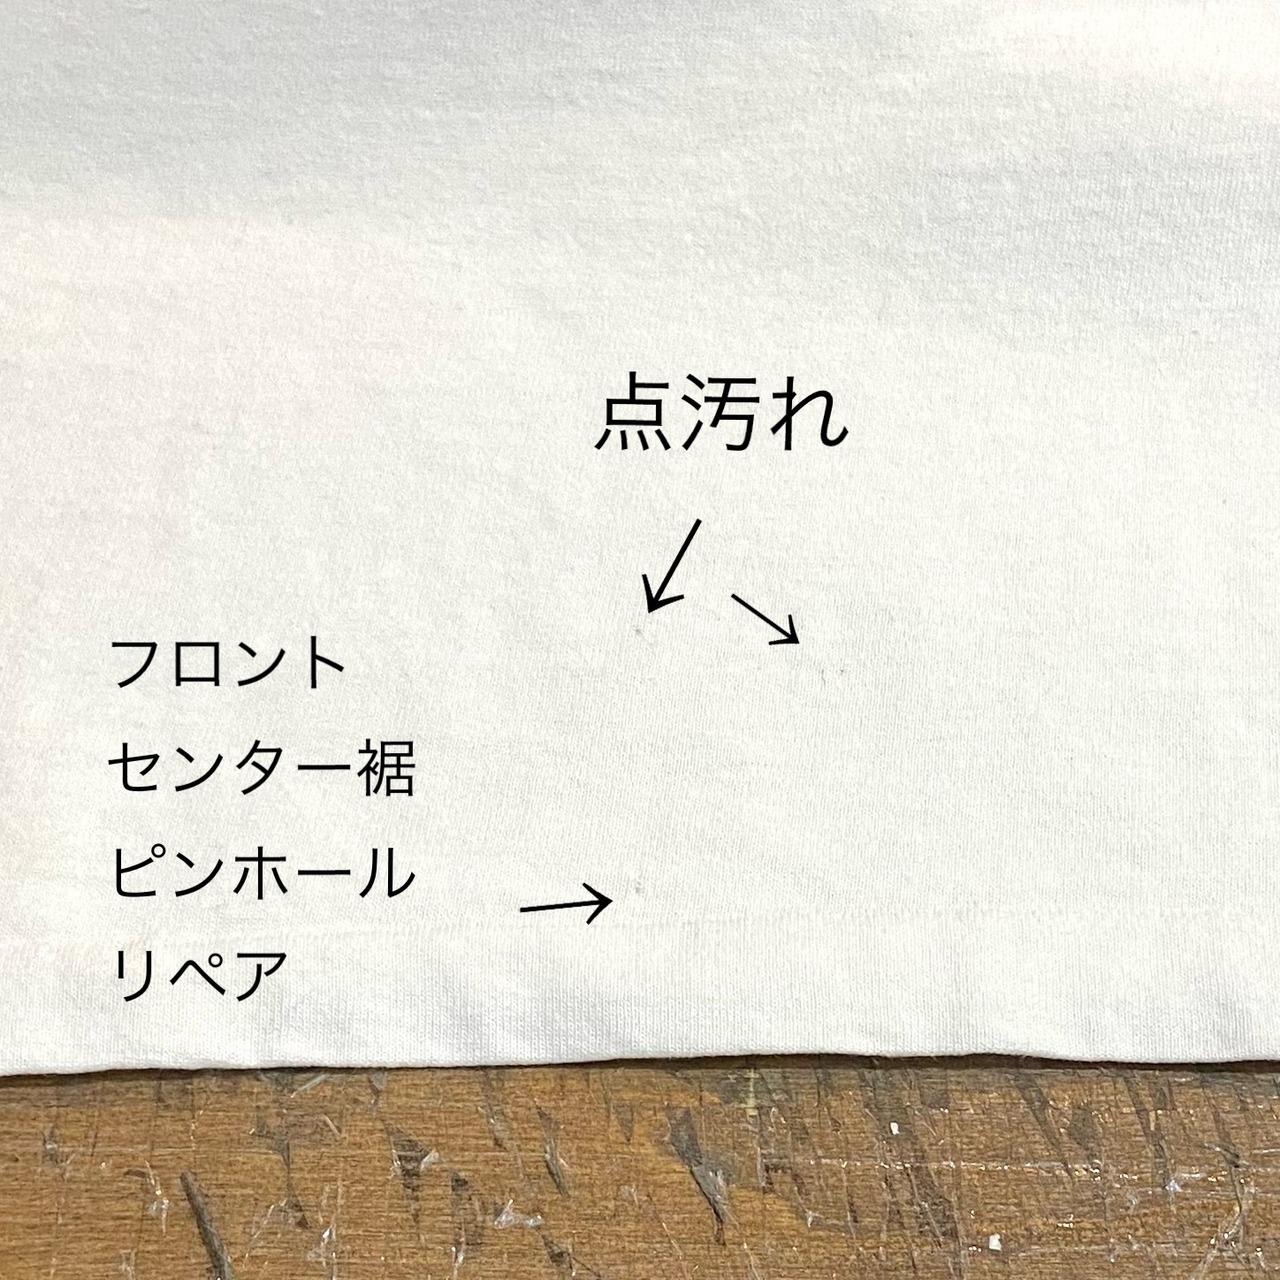 点汚れ
フロント
センター裾
ピンホール
リペア